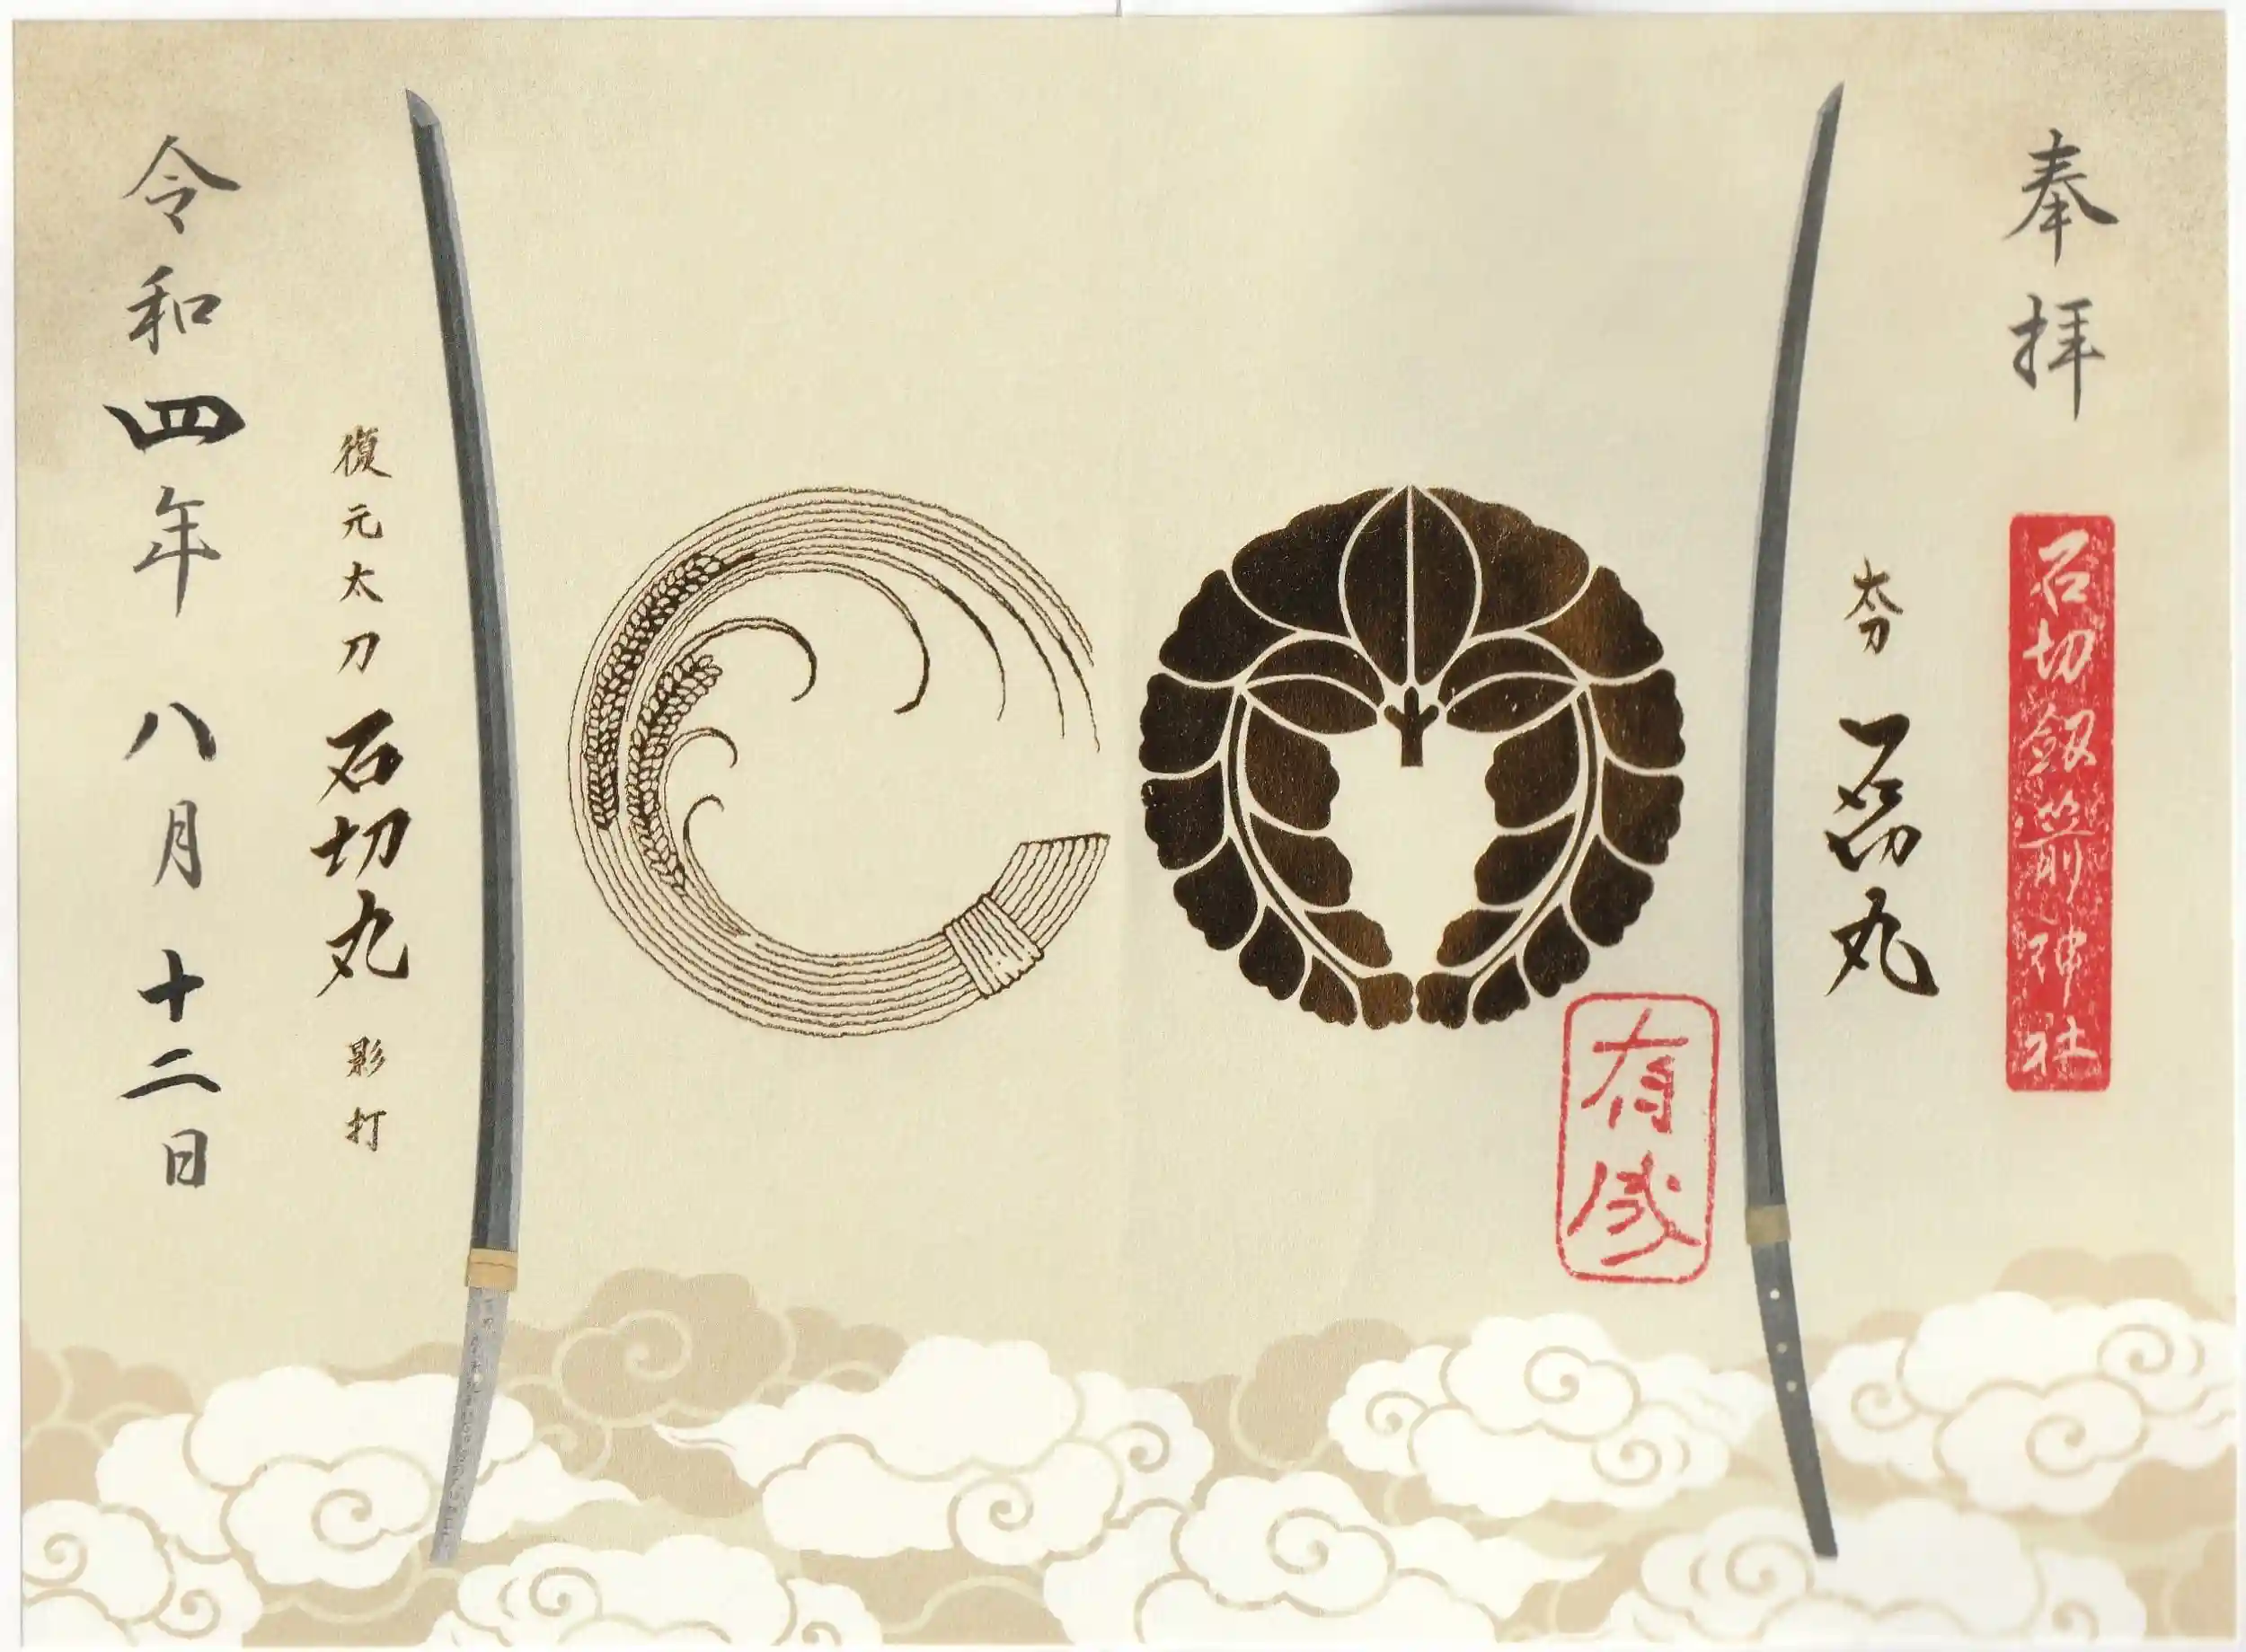 奉拝
石切劔箭神社
太刀 石切丸
有成
復元太刀 石切丸 影打
令和四年 八月 十二日